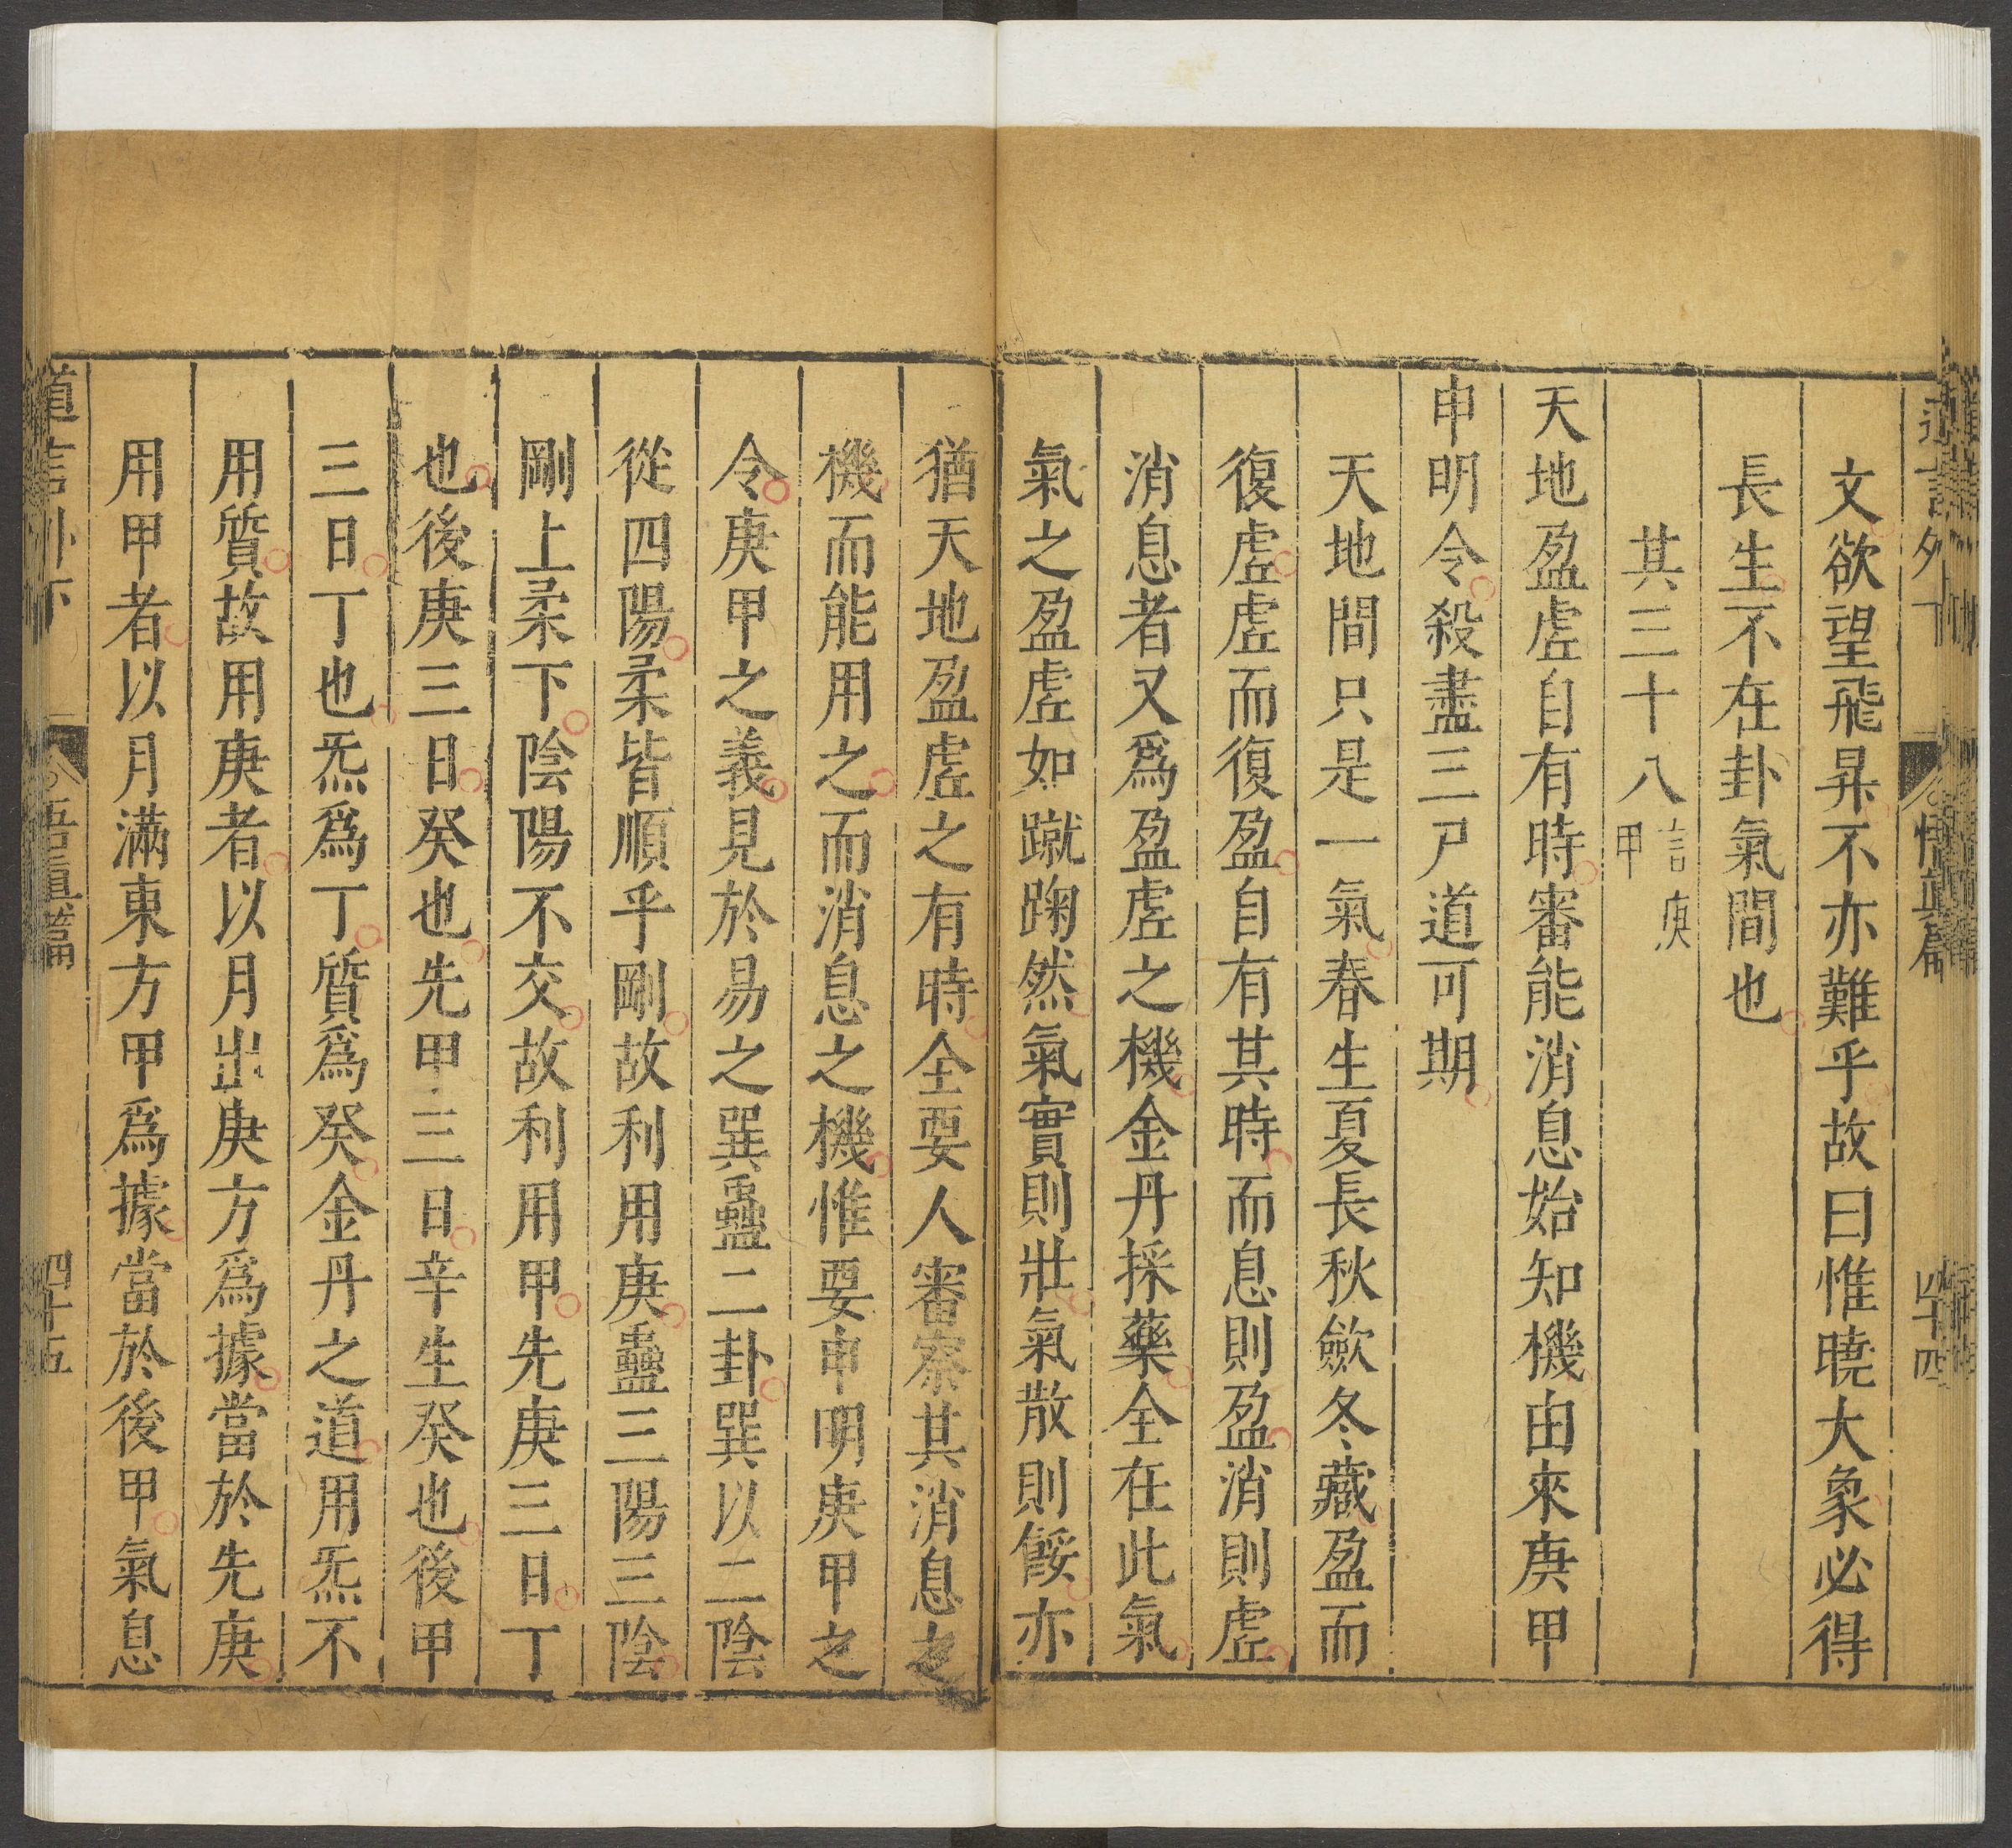 文欲望飛昇不亦難乎故曰惟曉大象必得
長生不在卦氣間也
其三十八言庚甲
天地盈虗自有時審能消息始知機由來庚甲
申明令殺盡三尸道可期
天地間只是一氣春生夏長秋歛冬藏盈而
復虗虗而復盈自有其時而息則盈消則虗
消息者又爲盈虗之機金丹採藥全在此氣
氣之盈虗如蹴踘然氣實則壯氣散則餒亦
猶天地盈虗之有時全要人審察其消息之
機而能用之而消息之機惟要申明庚甲之
令庚甲之義見於易之巽蠱二卦巽以二陰
從四陽柔皆順乎剛故利用庚蠱三陽三陰
剛上柔下陰陽不交故利用甲先庚三日丁
也後庚三日癸也先甲三日辛生癸也後甲
三日丁也炁爲丁質爲癸金丹之道用炁不
用質故用庚者以月出庚方爲據當於先庚
用甲者以月滿東方甲爲據當於後甲氣息
道言外下
悟眞篇
四十五